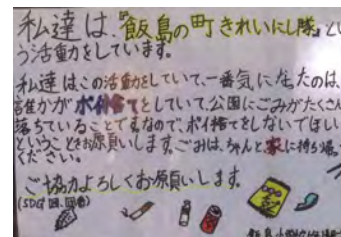 私達は、『飯島の町きれいにし隊』とい
う活動をしています。
私達はこの活動をしていて、一番気になったのは、
誰かがポイ捨てとしていて、公園にごみがたくさん
落ちていることです。なので、ポイ捨てをしないでほしい
ということをお願いします。ごみは、ちゃんと家に持ち帰って
ください。
ご協力よろしくお願いします。